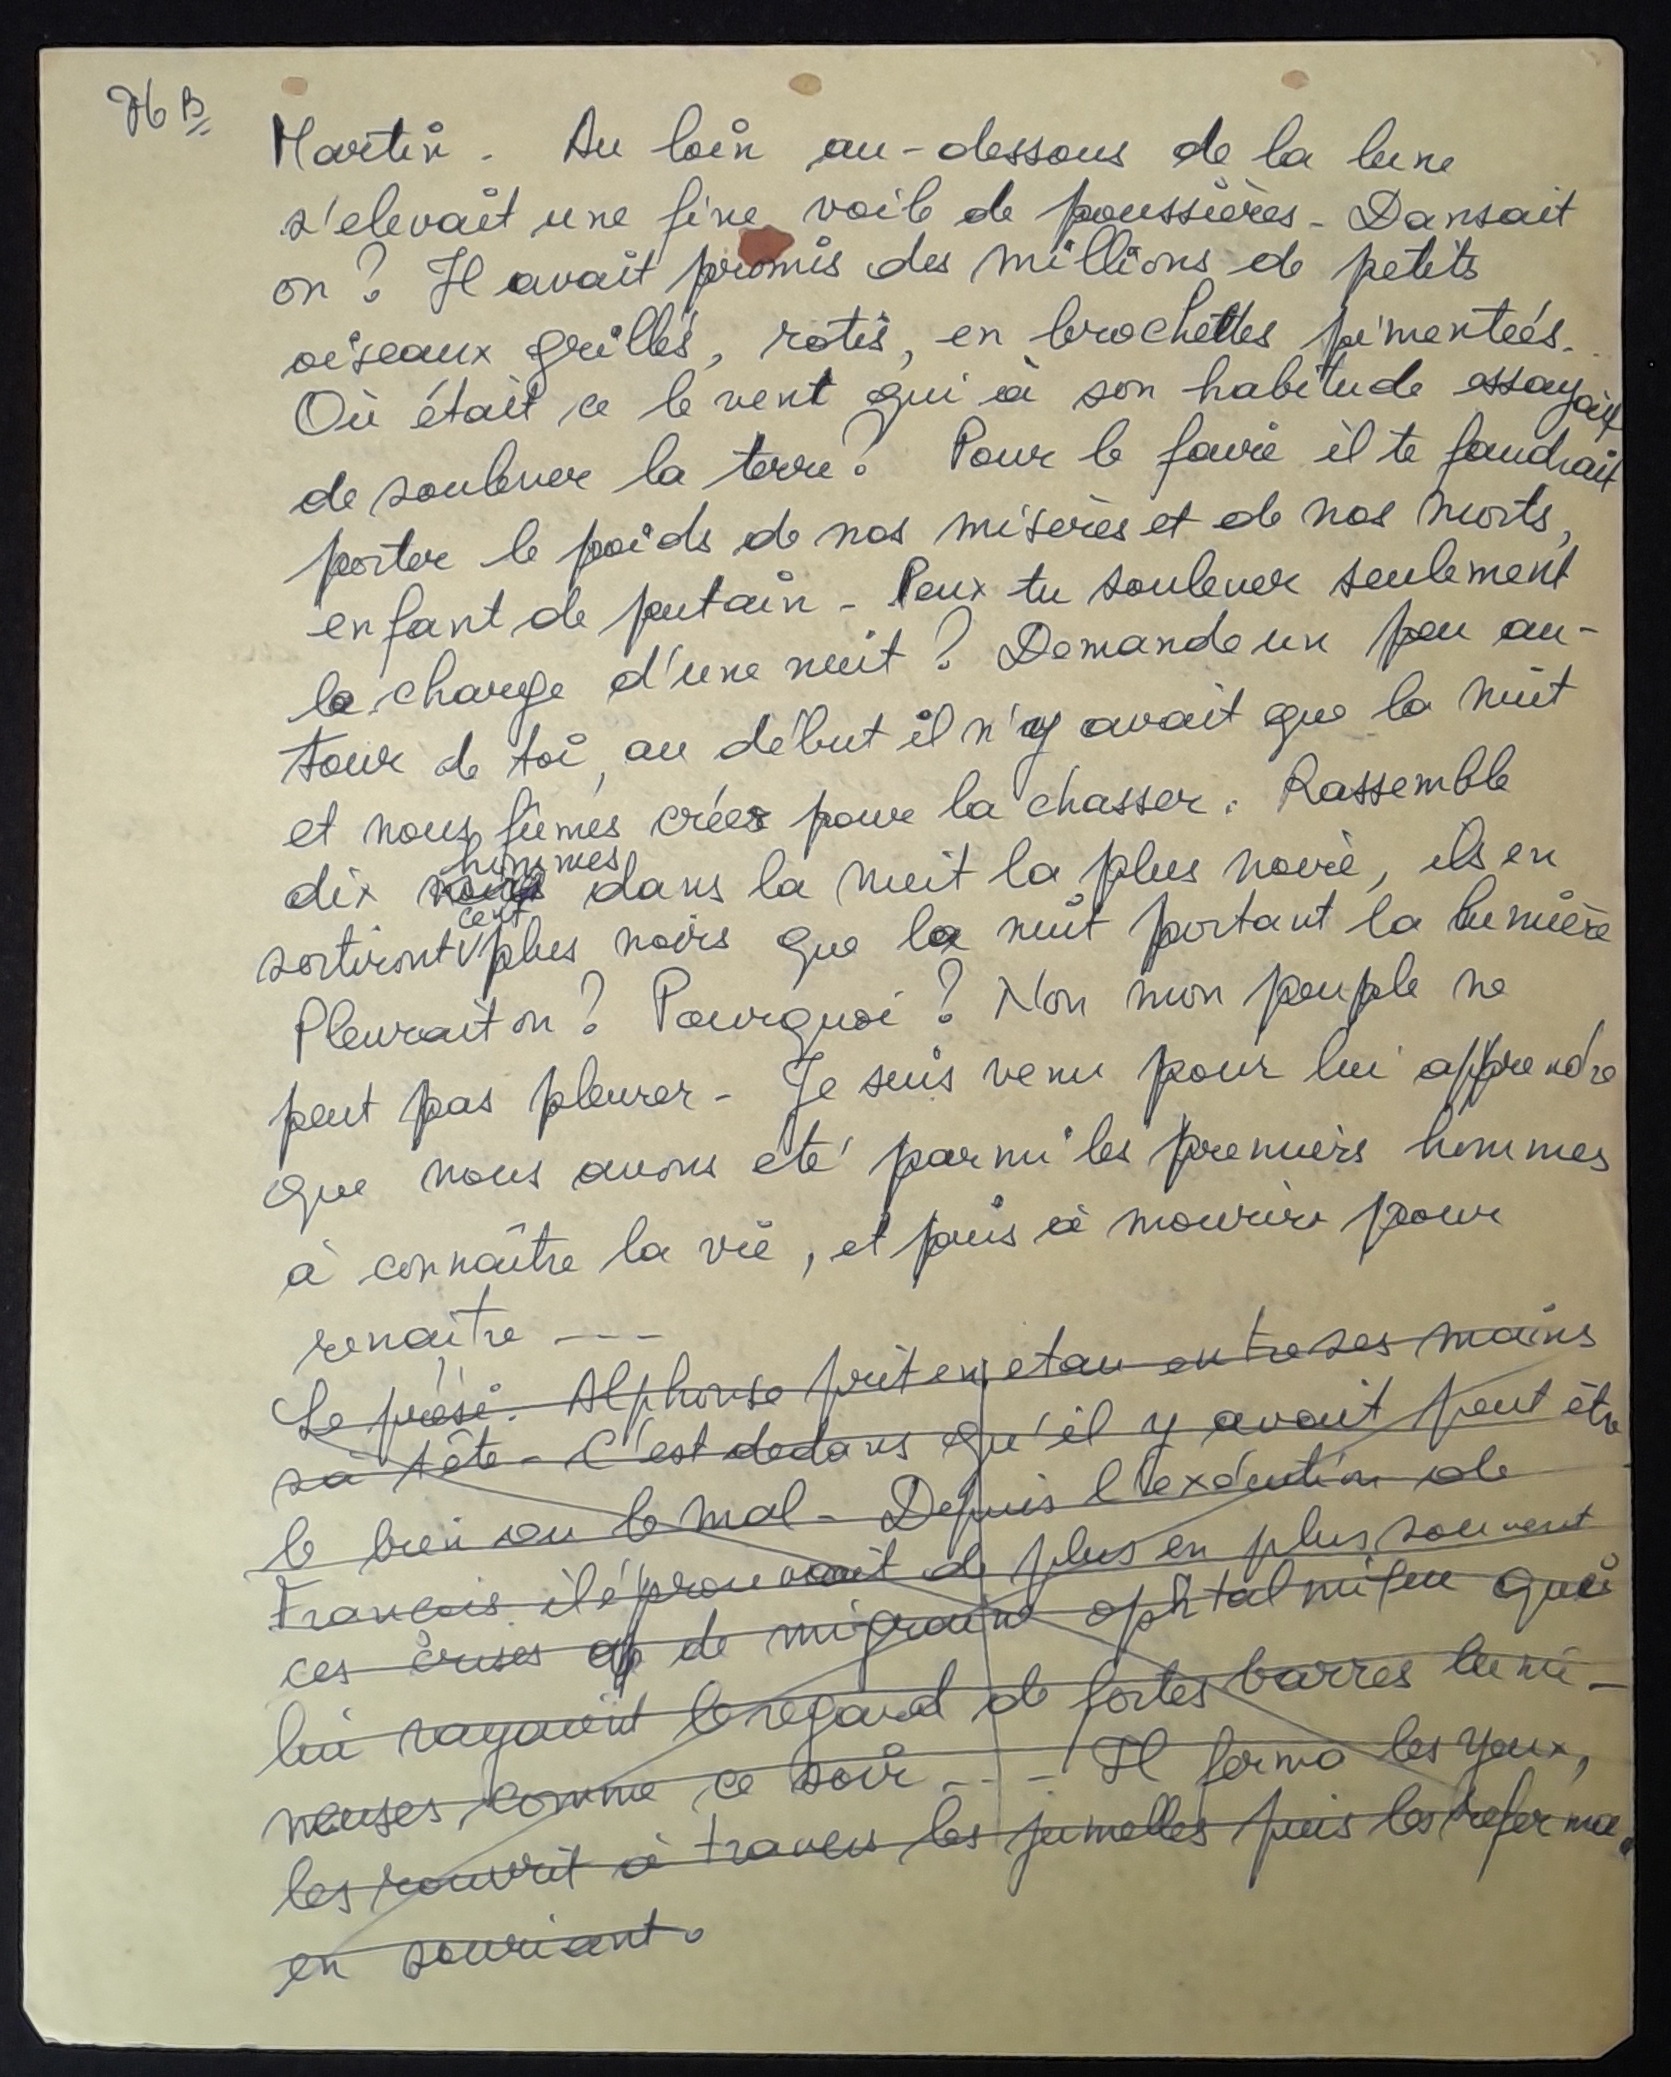 76 B
Martin. Au loin au-dessous de la lune
s'elevait une fine voile de poussières - Dansait
on ? Il avait promis des millions de petits
oiseaux grillés, rotis, en brochettes pimenteés.
Où était ce le vent qui à son habitude essayait
de soulever la terre ? Pour le faire il te faudrait
porter le poids de nos misères et de nos morts,
enfant de putain - Peux tu soulever seulement
la charge d'une nuit ? Demande un peu au-
tour de toi, au début il n'y avait que la nuit
et nous fûmes crées pour la chasser. Rassemble
hommes
dix dans la nuit la plus noire, ils en
cent
sortiront plus noirs que la nuit portant la lumière
Pleurait on ? Pourquoi ? Non mon peuple ne
peut pas pleurer - Je suis venu pour lui apprendre
que nous avons été parmi les premiers hommes
à connaître la vie, et puis à mourir pour
renaître ---
Le prési. Alphonse prit en etau entre ses mains
sa tête - C'est dedans qu'il y avait peut être
le bien ou le mal - Depuis l'exécution de
François il éprouvait de plus en plus souvent
ces crises de migraine ophtalmique qui
lui rayaient le regard de fortes barres lumi-
neuses comme ce soir --- Il ferma les yeux,
les rouvrit à travers les jumelles puis les referma.
en souriant.